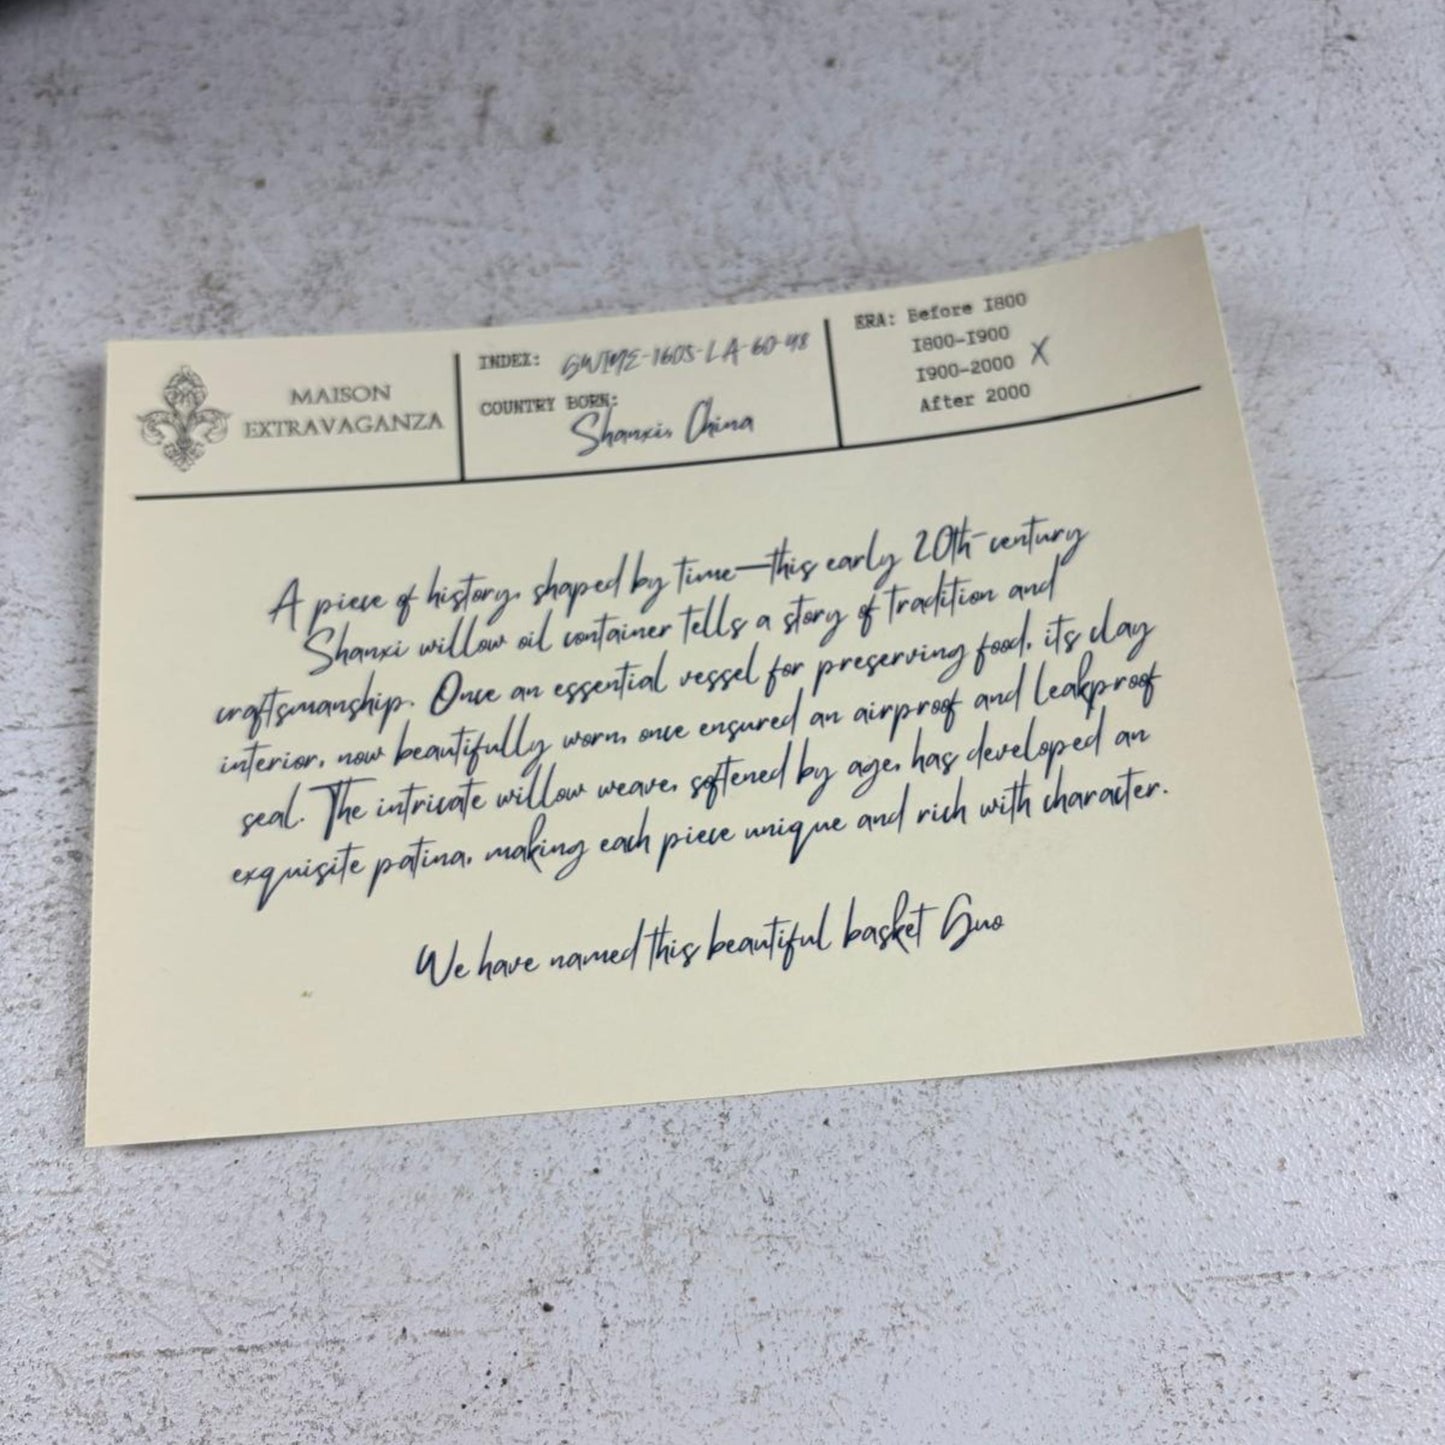 MAISON
EXTRAVAGANZA
INDEX: GWIME-1603-LA-60-48
COUNTRY BORN:
Shanxi, China
ERA: Before 1800
1800-1900
1900-2000 X
After 2000
A piece of history, shaped by time—this early 20th-century
Shanxi willow oil container tells a story of tradition and
craftsmanship. Once an essential vessel for preserving food, its clay
interior, now beautifully worn, once ensured an airproof and leakproof
seal. The intricate willow weave, softened by age, has developed an
exquisite patina, making each piece unique and rich with character.
We have named this beautiful basket Guo